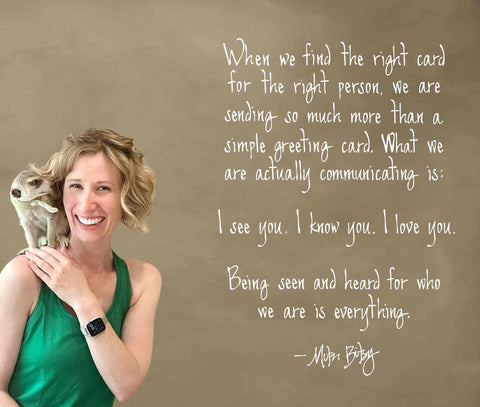 When we find the right card
for the right person, we are
sending so much more than a
simple greeting card. What we
are actually communicating is:
I see you. I know you. I love you.
Being seen and heard for who
we are is everything.
— Mitzi Bitsy